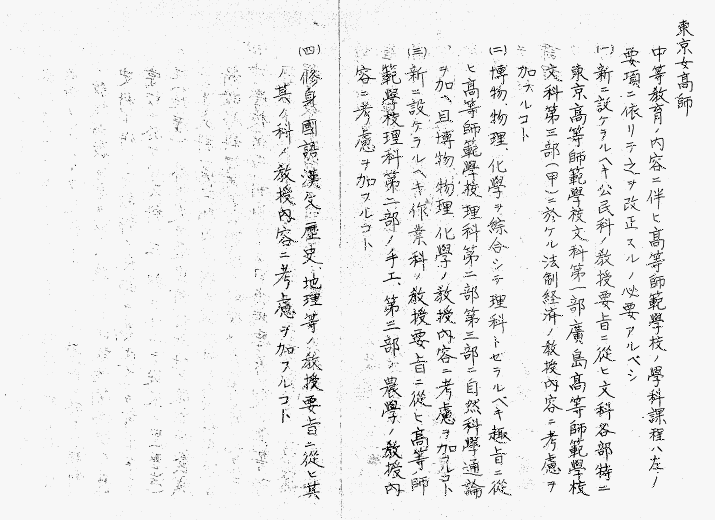 東京女高師
中等教育ノ内容ニ伴ヒ高等師範學校ノ學科課程ハ左ノ
要項ニ依リテ之ヲ改正スルノ必要アルベシ
(一)新ニ設ケラルヘキ公民科ノ教授要旨ニ從ヒ文科各部特ニ
東京高等師範學校文科第一部廣島高等師範學校
文科第三部(甲)ニ於ケル法制経済ノ教授内容ニ考慮ヲ
加フルコト
(二)博物、物理、化學ヲ綜合シテ理科トセラルベキ趣旨ニ從
ヒ高等師範學校理科第二部第三部ニ自然科學通論
ヲ加ヘ且博物、物理、化學ノ教授内容ニ考慮ヲ加フルコト
(三)新ニ設ケラルヘキ作業科ノ教授要旨ニ從ヒ高等師
範學校理科第二部ノ手工、第三部ノ農學ノ教授内
容ニ考慮ヲ加フルコト
(四)修身、國語、漢文、歴史、地理等ノ教授要旨ニ從ヒ其
ノ其ノ科ノ教授内容ニ考慮ヲ加フルコト